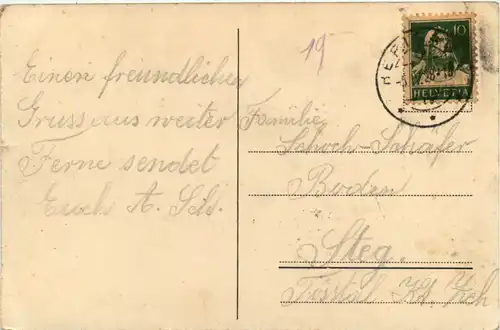 Einen freundlichen
Gruss aus weiter
Ferne sendet
Euch A. Sch.
19
10
HELVETIA
Familie
Schoch-Schäfer
Boden
Steg.
Tösstal Kt. Zch